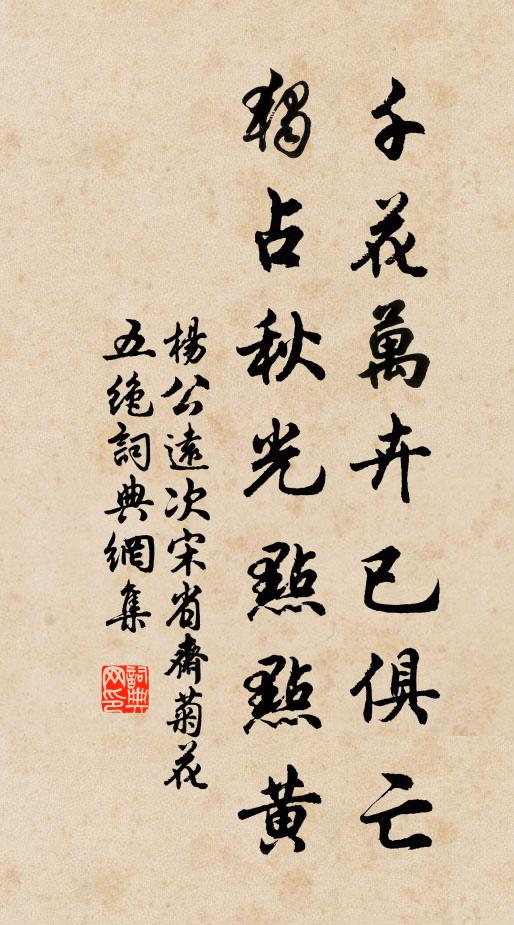 千花萬卉已俱亡
獨占秋光點點黃
楊公遠次宋省齋菊花
五絶詞典網集
詞典網印